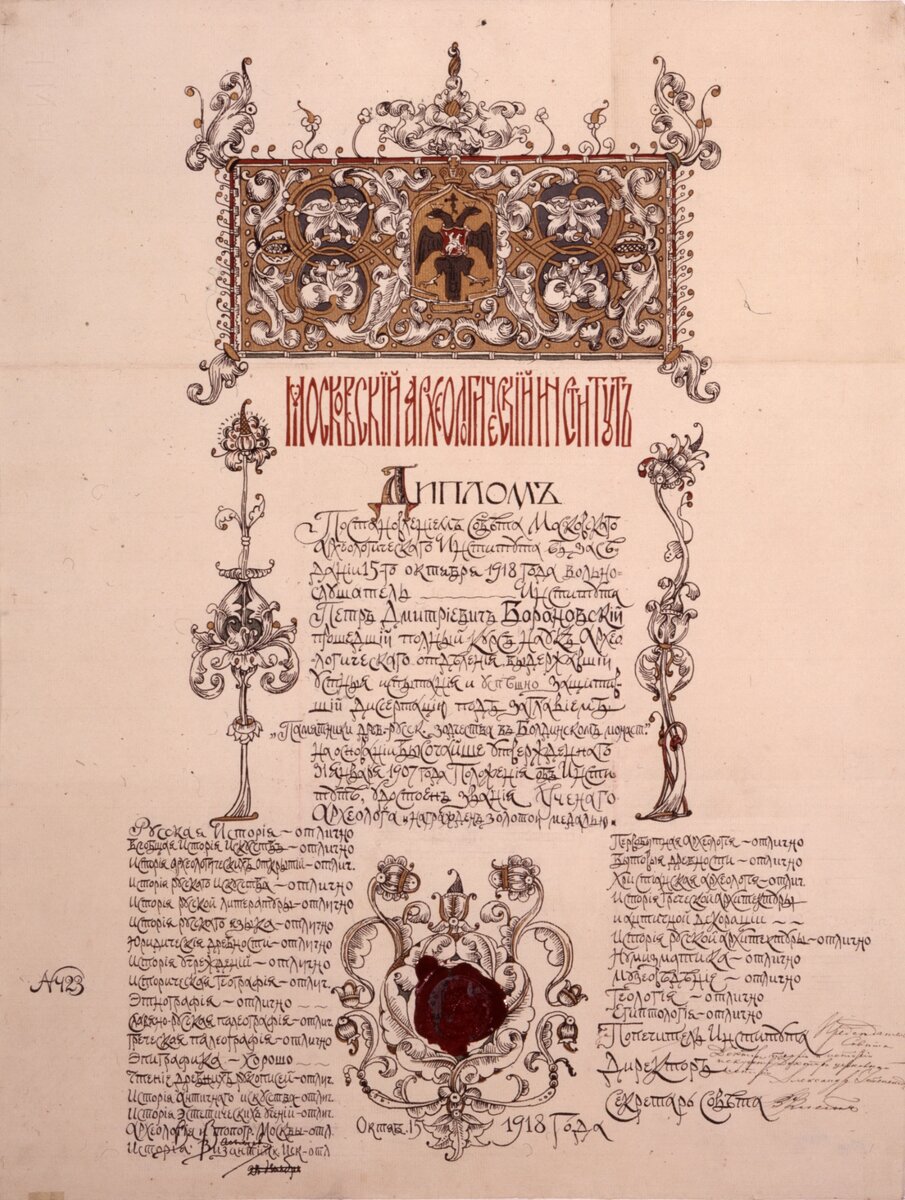 МОСКОВСКІЙ АРХЕОЛОГИЧЕСКІЙ ИНСТИТУТЪ
Дипломъ
Постановленіемъ Совѣта Московскаго
Археологическаго Института въ засѣ-
даніи 15-го октября 1918 года вольно-
слушатель Института
Петръ Дмитріевичъ Барановскій
прошедшій полный курсъ наукъ архео-
логическаго отдѣленія, выдержавшій
устныя испытанія и успѣшно защитив-
шій диссертацію подъ заглавіемъ
„Памятники древ-русск. зодчества въ Болдинскомъ монаст."
на основаніи Высочайше утвержденнаго
31 января 1907 года Положенія объ Инсти-
тутѣ, удостоенъ званія Ученаго
Археолога и награжденъ золотой медалью.
Русская Исторія – отлично
Всеобщая Исторія Искусствъ – отлично
Исторія археологическихъ открытій – отлич.
Исторія русскаго искусства – отлично
Исторія русской литературы – отлично
Исторія русскаго языка – отлично
Юридическія древности – отлично
Исторія учрежденій – отлично
Историческая География – отлич.
Этнографія – отлично
Славяно-русская палеографія – отлич.
Греческая палеографія – отлич.
Эпиграфика – хорошо
Чтеніе древнихъ рукописей – отлич.
Исторія античнаго искусства – отлич.
Исторія эстетическихъ ученій – отлич.
Археология и топогр. Москвы – отл.
Исторія Византійск. Иск – отл
№ 123
Первобытная археологія – отлично
Бытовыя древности – отлично
Христіанская археологія – отлич.
Исторія Греческой архитектуры
и античной декорации – –
Исторія русской архитектуры – отлично
Нумизматика – отлично
Музеовѣдѣніе – отлично
Геологія – отлично
Египтологія – отлично
Попечитель Института
Директоръ
Секретарь Совѣта
Октяб. 15 1918 Года